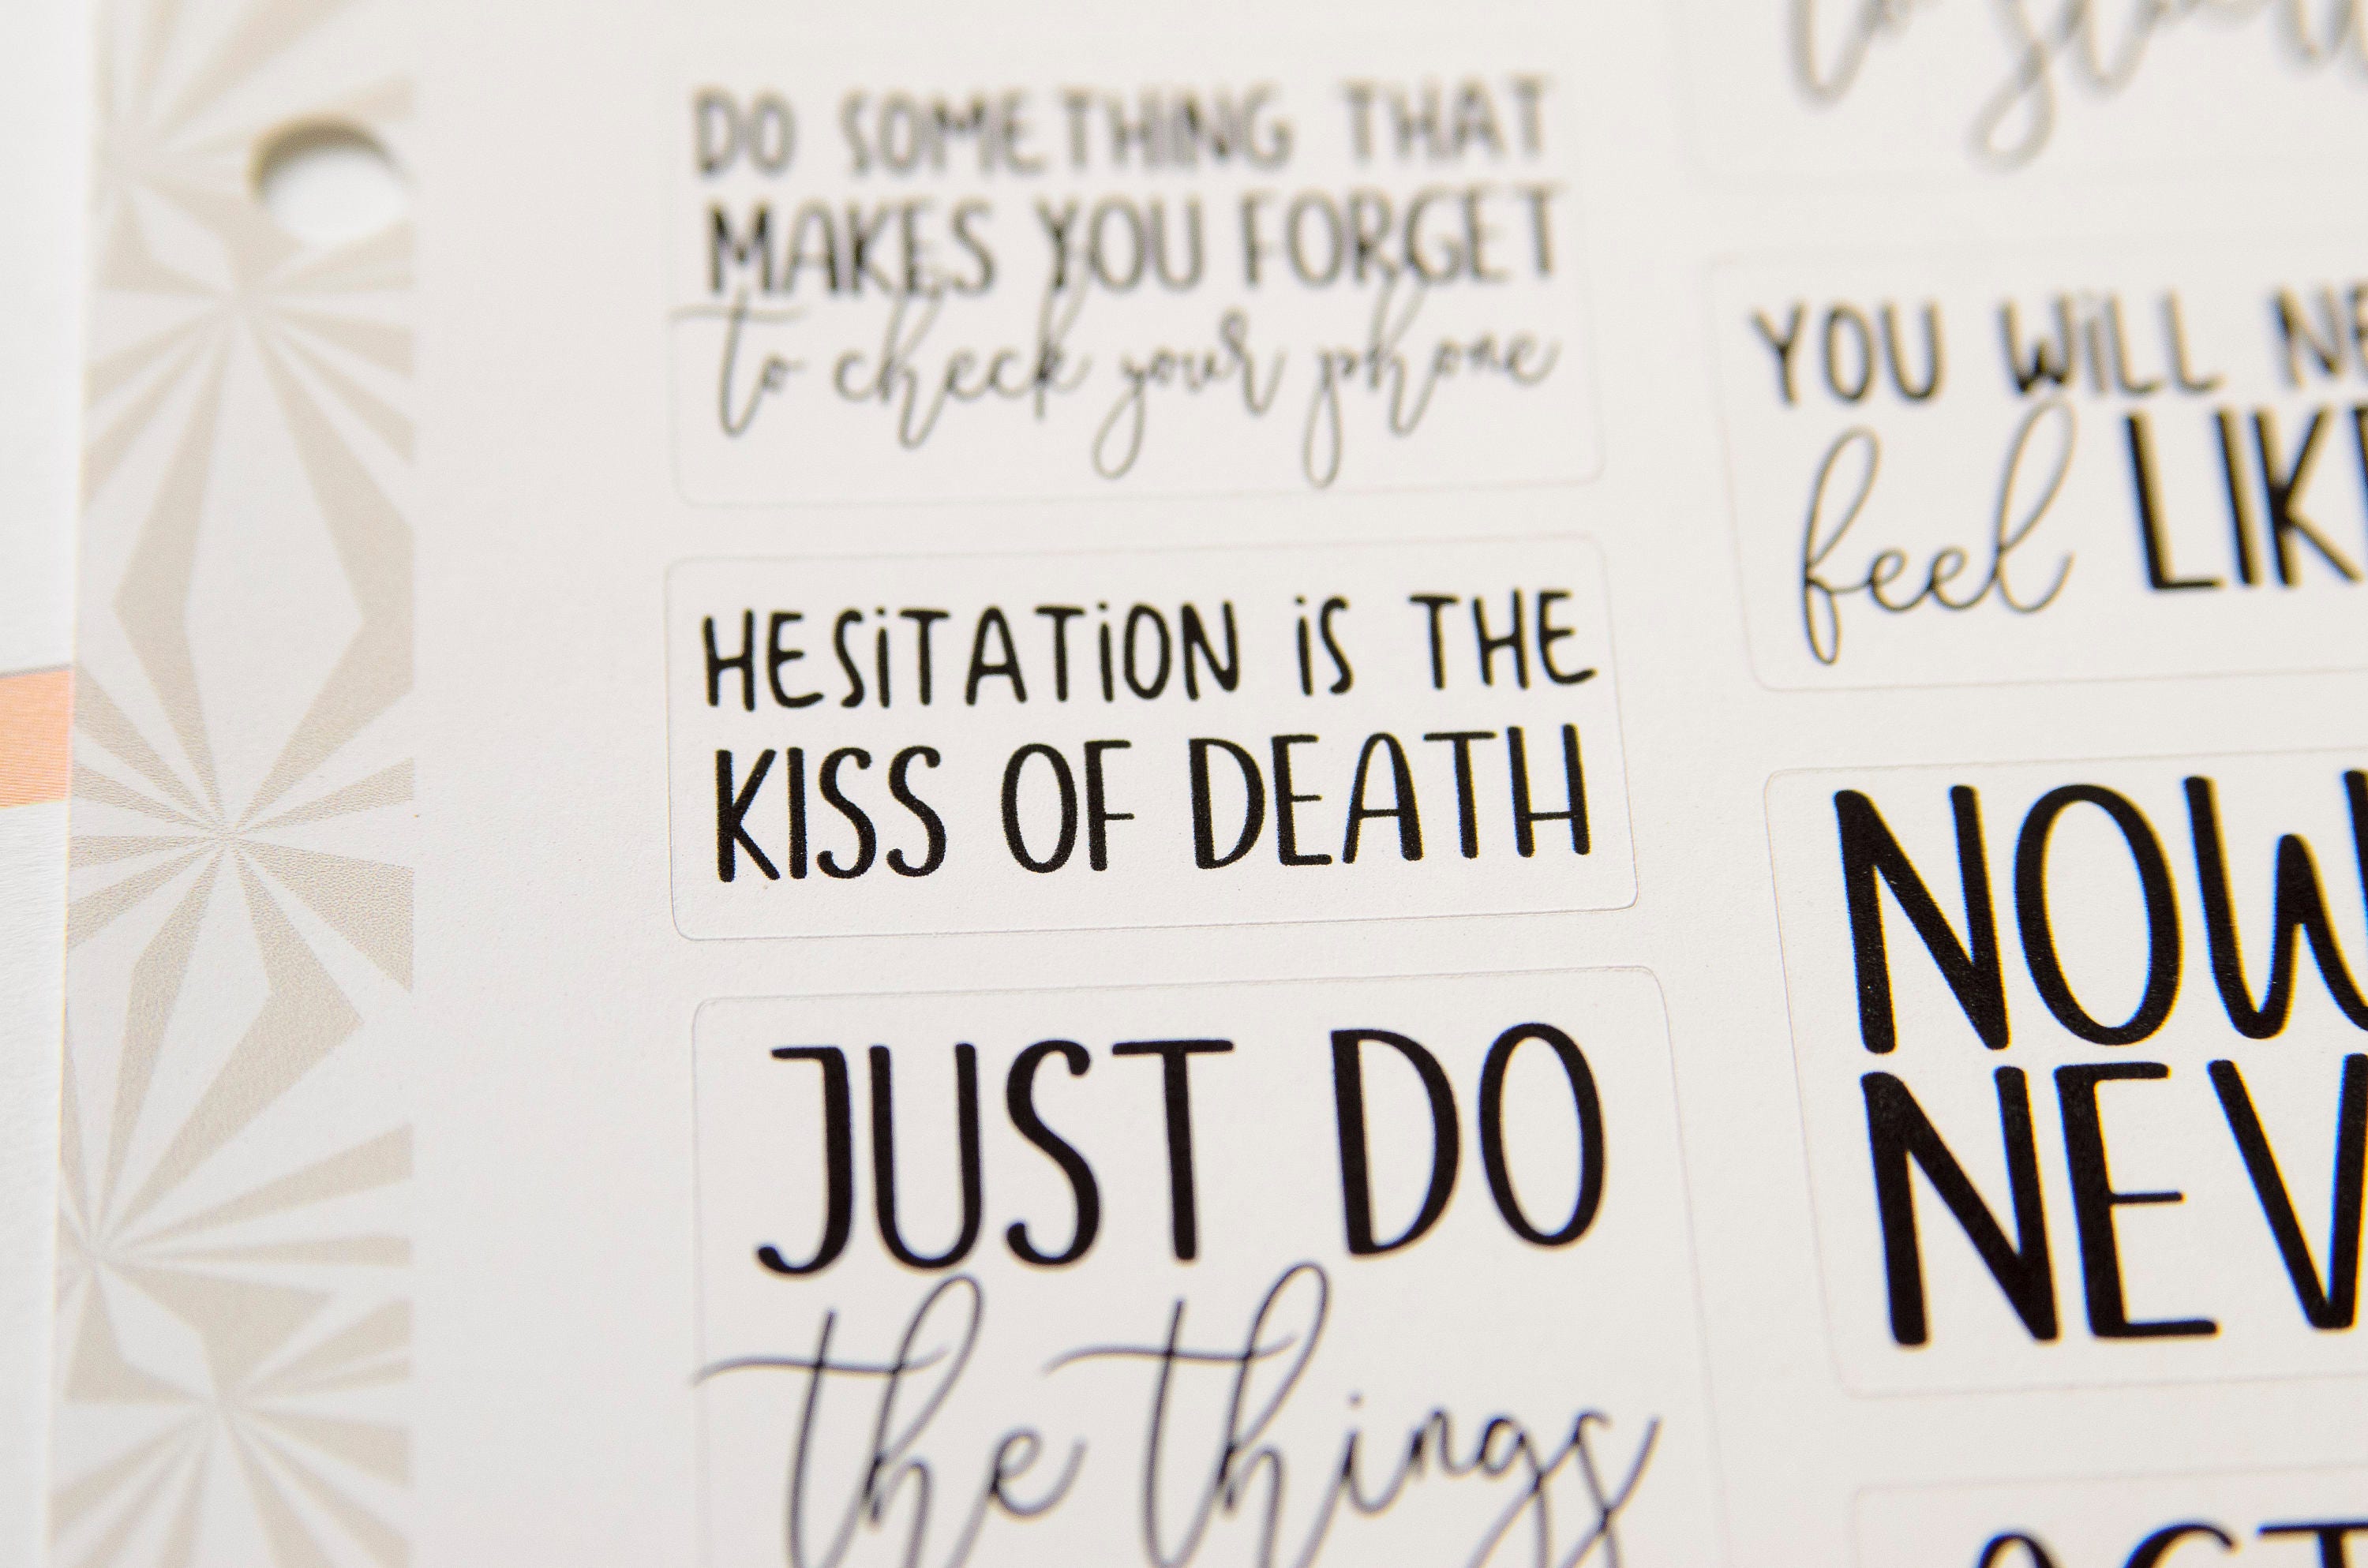 DO SOMETHING THAT
MAKES YOU FORGET
to check your phone
HESiTATiON iS THE
KISS OF DEATH
JUST DO
the things
to
YOU WiLL
feel LIKE
NOW